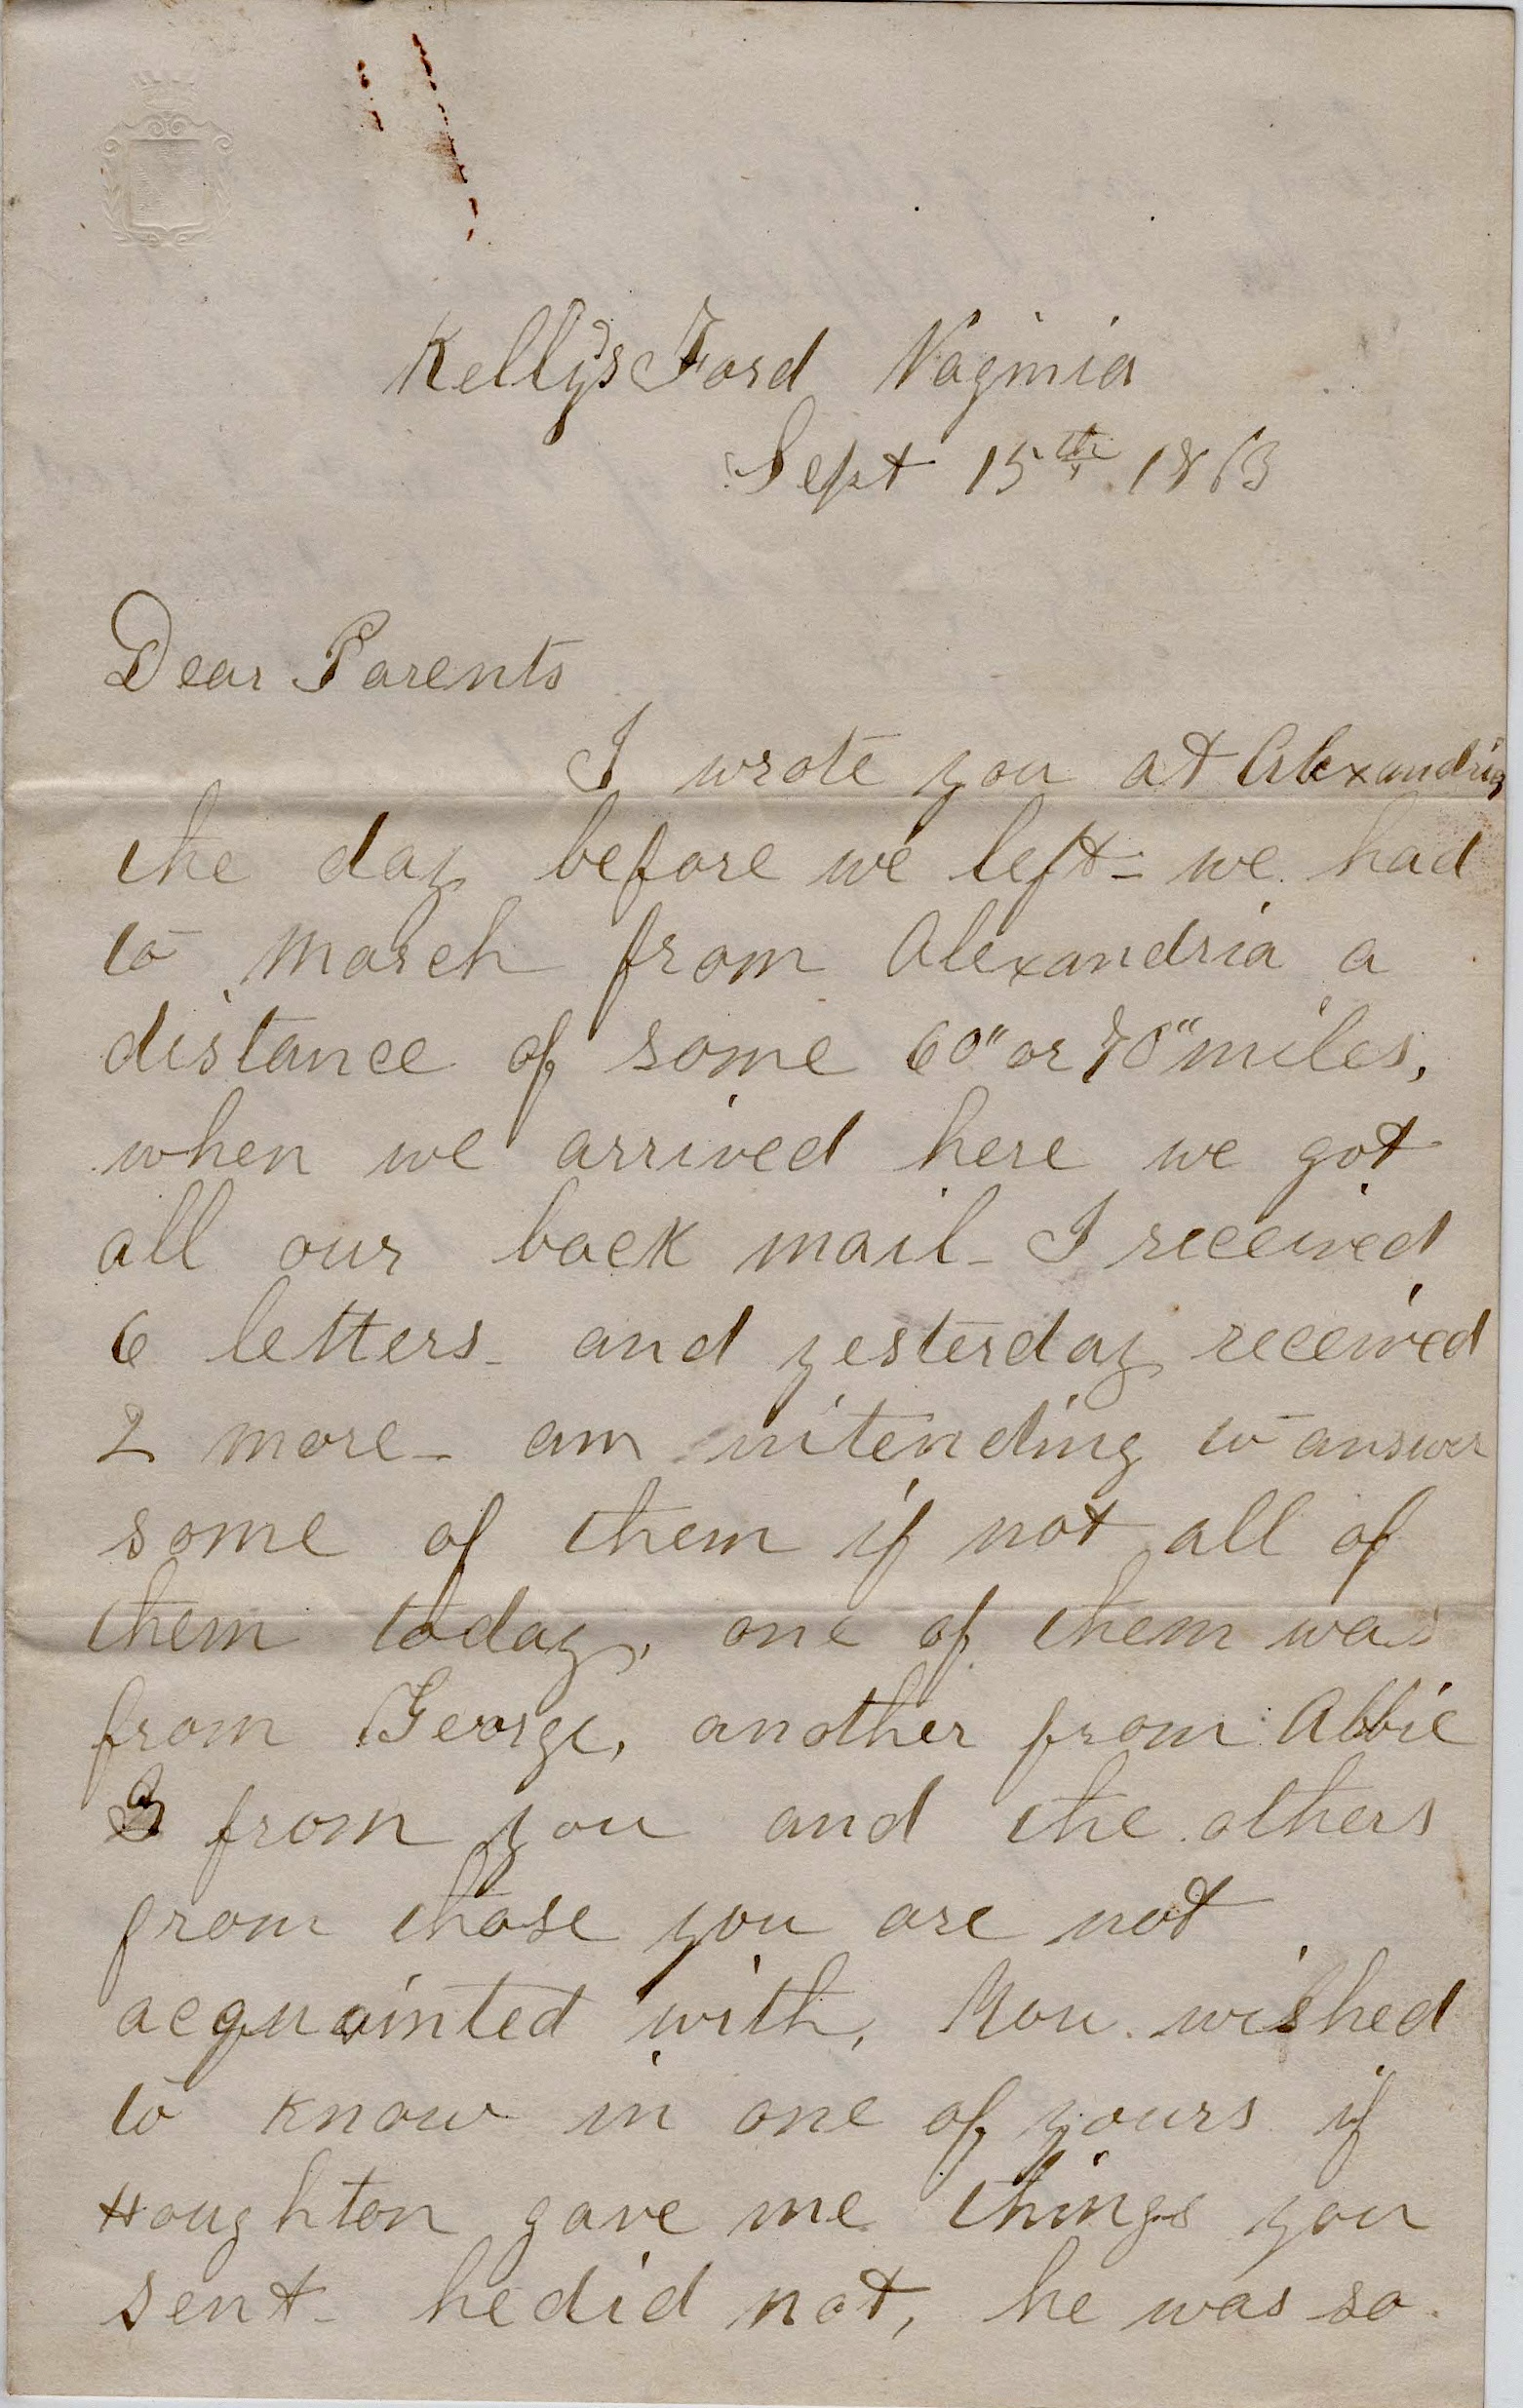 Kelly's Ford Virginia
Sept 15th 1863
Dear Parents
I wrote you at Alexandria
the day before we left - we had
to march from Alexandria a
distance of some 60" or 70" miles,
when we arrived here we got
all our back mail - I received
6 letters - and yesterday received
2 more - am intending to answer
some of them if not all of
them today, one of them was
from George, another from Abbie
3 from you and the others
from those you are not
acquainted with, You wished
to know in one of yours if
Houghton gave me things you
sent - he did not, he was so